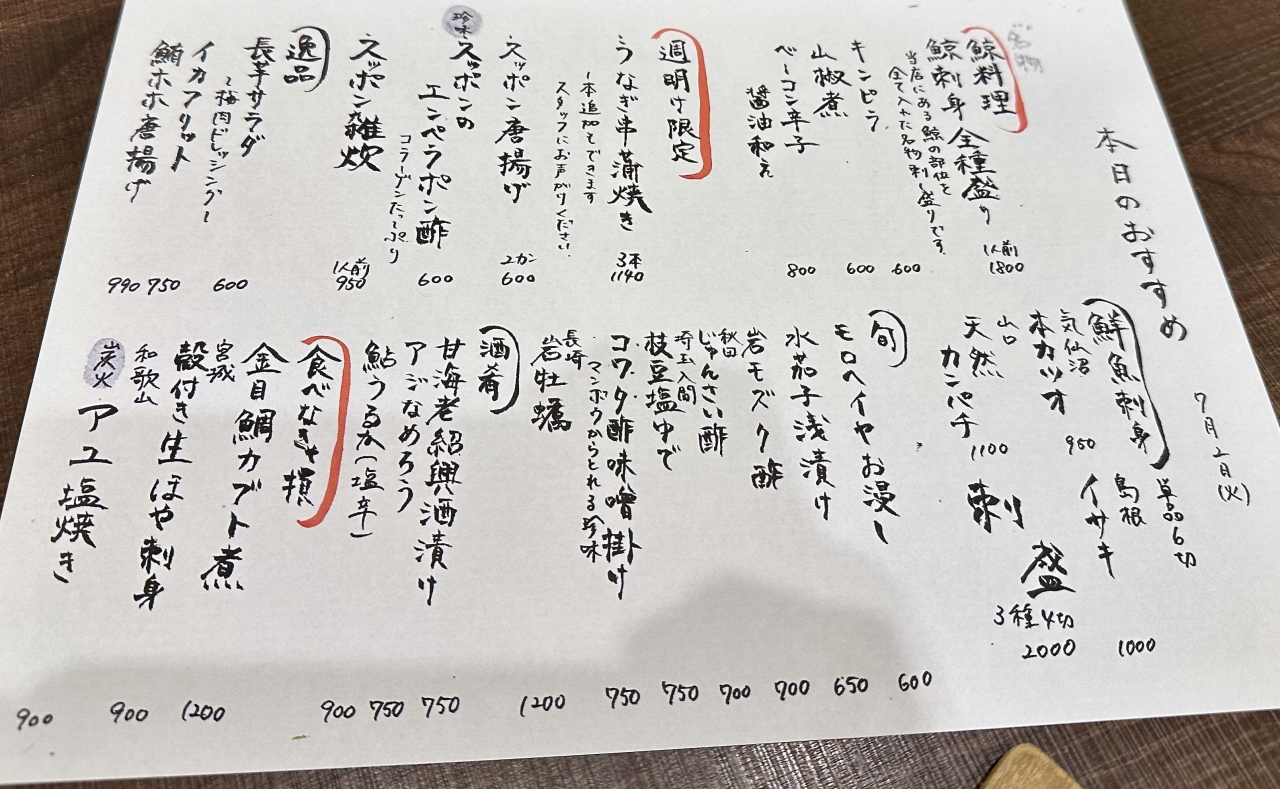 本日のおすすめ
7月2日(火)
名物
鯨料理
鯨刺身 全種盛り 1人前 1800
当店にある鯨の部位を
全て入れた名物刺し盛りです。
キンピラ 600
山椒煮 600
ベーコン辛子
醤油和え 800
週明け限定
うなぎ串蒲焼き 3本 1140
一本追加もできます
スタッフにお声がけください。
スッポン唐揚げ 2カン 600
珍味
スッポンの
エンペラポン酢 600
コラーゲンたっぷり
スッポン雑炊 1人前 950
逸品
長芋サラダ 600
~梅肉ドレッシング~
イカフリット 750
鮪ホホ唐揚げ 990
鮮魚刺身 単品6切
島根
イサキ 1000
気仙沼
本カツオ 950
山口
天然
カンパチ 1100
刺盛
3種4切
2000
旬
モロヘイヤお浸し 600
水茄子浅漬け 650
岩モズク酢 700
秋田
じゅんさい酢 700
埼玉入間
枝豆塩ゆで 750
コワタ酢味噌掛け 750
マンボウからとれる珍味
長崎
岩牡蠣 1200
酒肴
甘海老紹興酒漬け 750
アジなめろう 750
鮎うるか(塩辛) 900
食べなきゃ損
金目鯛カブト煮 1200
宮城
殻付き生ほや刺身 900
和歌山
炭火
アユ塩焼き 900